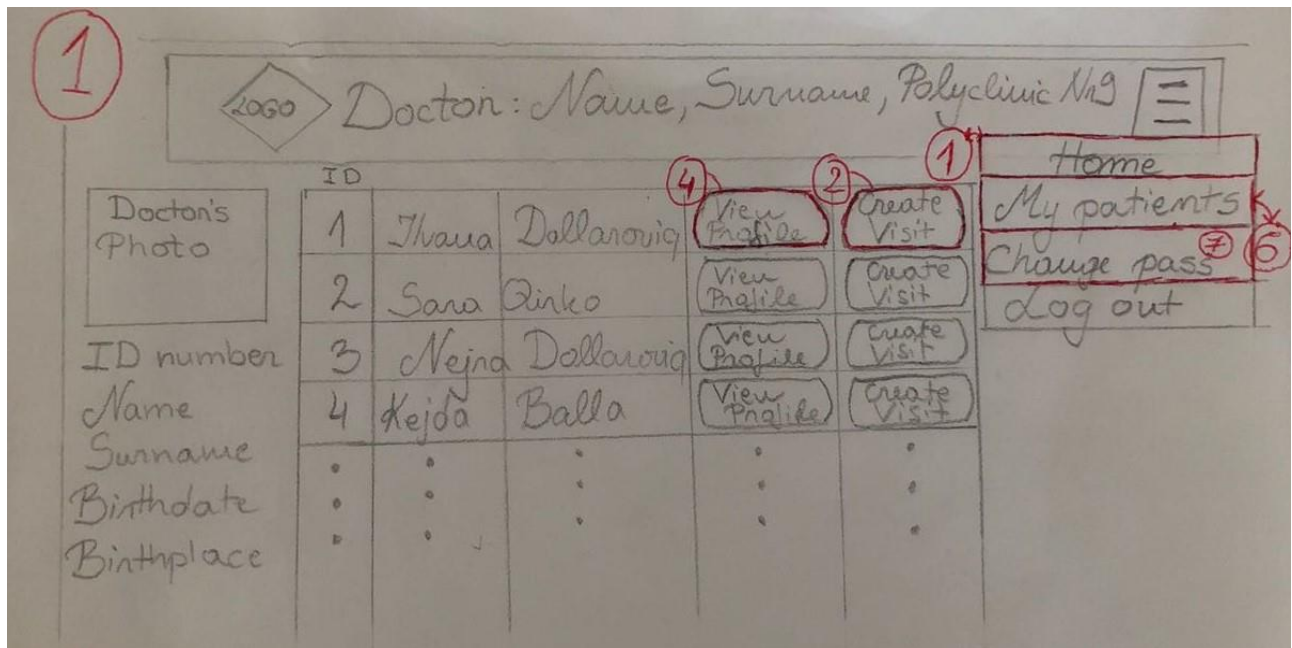 1
LOGO Doctor: Name, Surname, Polyclinic Nr9
1 Home
My patients 6
Change pass 7
Log out
Doctor's
Photo
ID number
Name
Surname
Birthdate
Birthplace
ID 4 2
1 Ivana Dollaroviq View Profile Create Visit
2 Sara Qinko View Profile Create Visit
3 Nejna Dollaroviq View Profile Create Visit
4 Kejda Balla View Profile Create Visit